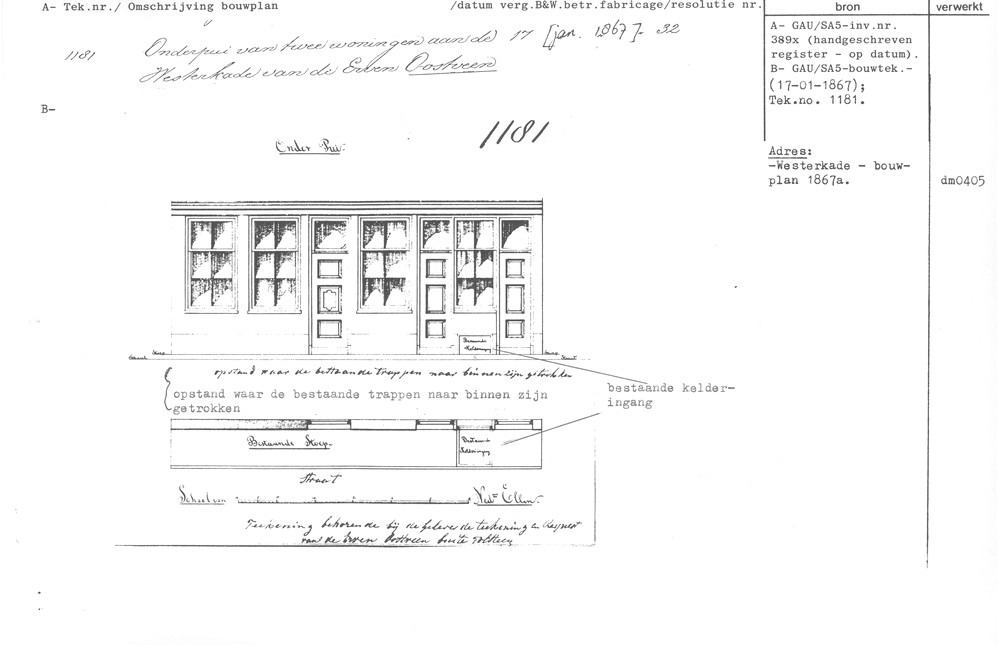 A- Tek.nr./ Omschrijving bouwplan
/datum verg.B&W.betr.fabricage/resolutie nr.
bron
verwerkt
1181
Onderpui van twee woningen aan de 17 [jan. 1867]- 32
Westerkade van de Erven Oostveen
A- GAU/SA5-inv.nr.
389x (handgeschreven
register - op datum).
B- GAU/SA5-bouwtek.-
(17-01-1867);
Tek.no. 1181.
B-
1181
Onder Pui.
Adres:
-Westerkade - bouw-
plan 1867a.
dm0405
Bestaande
Kelderingang
Stoep
Straat
opstand waar de bestaande trappen naar binnen zijn getrokken
opstand waar de bestaande trappen naar binnen zijn
getrokken
bestaande kelder-
ingang
Bestaande Stoep.
Bestaande
Kelderingang
Straat
Schaal van
Nedse Ellen.
Teekening behorende bij de teekening en Request
van de Erven Oostveen